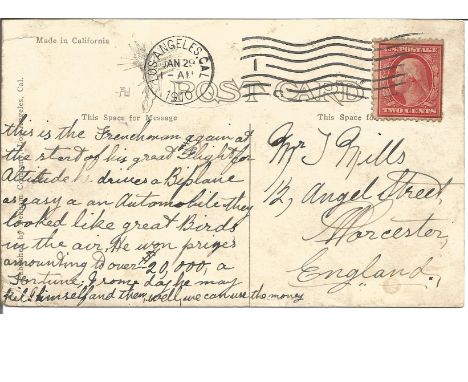 Made in California
LOS ANGELES, CAL.
JAN 29
1910
1
U.S. POSTAGE
TWO CENTS
POST CARD
This Space for Message
This Space for
this is the Frenchman again at
the start of his great Flight for
Altitude he drives a Biplane
as easy a an Automobile they
looked like great Birds
in the air, He won prizes
amounting to over $20,000, a
Fortune, some day he may
kill himself and then, well, we can use the money
Mr J Mills
12, Angel Street,
Worcester,
England.
Published by
Los Angeles, Cal.